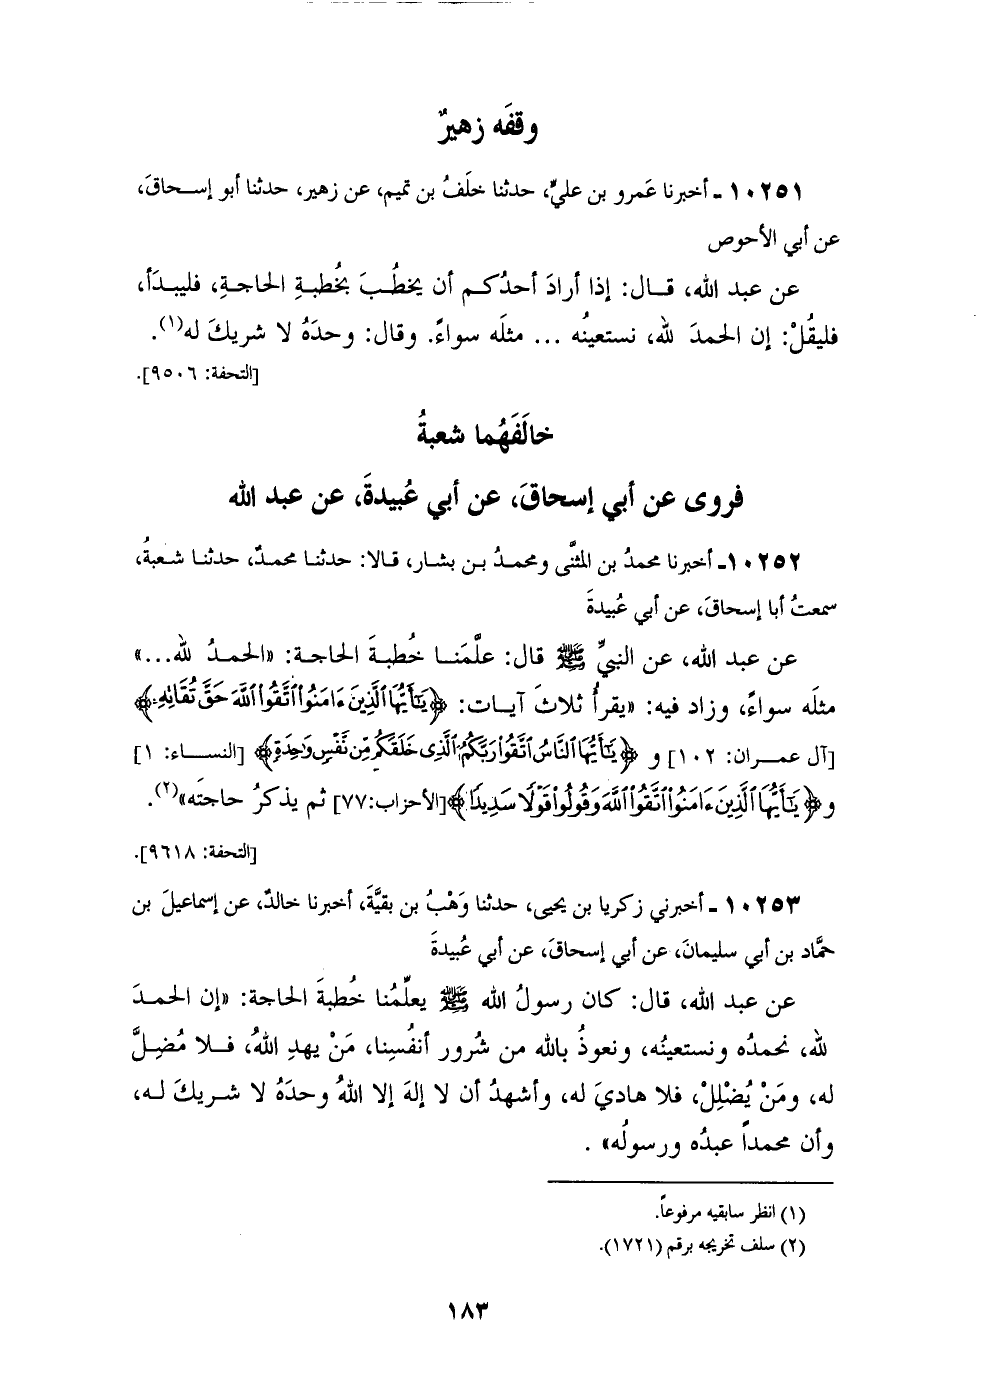 وقفَه زهيرٌ
١٠٢٥١ ـ أخبرنا عَمرو بن عليٍّ، حدثنا خلَفُ بن تميم، عن زهير، حدثنا أبو إسـحاقَ،
عن أبي الأحوص
عن عبد الله، قـال: إذا أرادَ أحدُكـم أن يخطُـبَ بخُطبـةِ الحاجـةِ، فليبـدَأ،
فليقُلْ: إن الحمدَ لله، نستعينُه ... مثلَه سواءً. وقال: وحدَهُ لا شريكَ له(١).
[التحفة: ٩٥٠٦].
خالَفَهُما شعبةُ
فروى عن أبي إسحاقَ، عن أبي عُبيدةَ، عن عبد الله
١٠٢٥٢ـ أخبرنا محمدُ بن المثنَّى ومحمـدُ بـن بشار، قـالا: حدثنـا محمدٌ، حدثنـا شـعبةُ،
سمعتُ أبا إسحاقَ، عن أبي عُبيدةَ
عن عبد الله، عن النبيِّ ﷺ قال: علَّمَنـا خُطبـةَ الحاجـة: «الحمـدُ لله...»
مثلَه سواءً، وزاد فيه: «يقرأُ ثلاثَ آيـات: ﴿يَٰٓأَيُّهَا ٱلَّذِينَ ءَامَنُوا۟ ٱتَّقُوا۟ ٱللَّهَ حَقَّ تُقَاتِهِۦ﴾
[آل عمـران: ١٠٢] و ﴿يَٰٓأَيُّهَا ٱلنَّاسُ ٱتَّقُوا۟ رَبَّكُمُ ٱلَّذِى خَلَقَكُم مِّن نَّفْسٍ وَٰحِدَةٍ﴾ [النسـاء: ١]
و﴿يَٰٓأَيُّهَا ٱلَّذِينَ ءَامَنُوا۟ ٱتَّقُوا۟ ٱللَّهَ وَقُولُوا۟ قَوْلًا سَدِيدًا﴾[الأحزاب:٧٧] ثم يذكرُ حاجتَه»(٢).
[التحفة: ٩٦١٨].
١٠٢٥٣ ـ أخبرني زكريا بن يحيى، حدثنا وَهْبُ بن بقيَّةَ، أخبرنا خالدٌ، عن إسماعيلَ بن
حمَّاد بن أبي سليمانَ، عن أبي إسحاقَ، عن أبي عُبيدةَ
عن عبد الله، قال: كان رسولُ الله ﷺ يعلِّمُنا خُطبةَ الحاجة: «إن الحمـدَ
لله، نحمدُه ونستعينُه، ونعوذُ بالله من شُرور أنفُسِنا، مَنْ يهدِ اللهُ، فـلا مُضِلَّ
له، ومَنْ يُضْلِلْ، فلا هاديَ له، وأشهدُ أن لا إلهَ إلا اللهُ وحدَهُ لا شـريكَ لـه،
وأن محمداً عبدُه ورسولُه» .
(١) انظر سابقيه مرفوعاً.
(٢) سلف تخريجه برقم (١٧٢١).
١٨٣